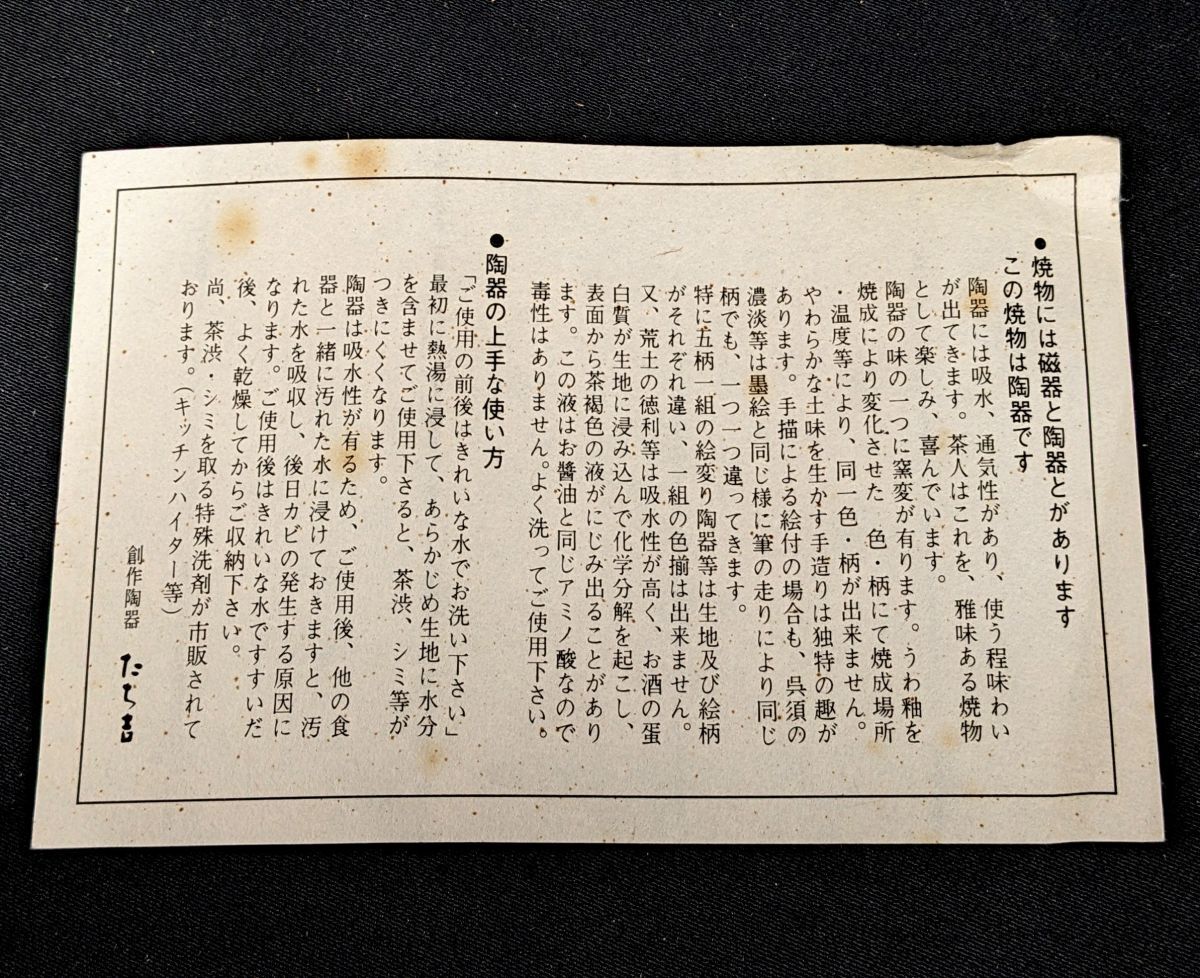 ●焼物には磁器と陶器とがあります
この焼物は陶器です
陶器には吸水、通気性があり、使う程味わい
が出てきます。茶人はこれを、雅味ある焼物
として楽しみ、喜んでいます。
陶器の味の一つに窯変が有ります。うわ釉を
焼成により変化させた 色・柄にて焼成場所
・温度等により、同一色・柄が出来ません。
やわらかな土味を生かす手造りは独特の趣が
あります。手描による絵付の場合も、呉須の
濃淡等は墨絵と同じ様に筆の走りにより同じ
柄でも、一つ一つ違ってきます。
特に五柄一組の絵変り陶器等は生地及び絵柄
がそれぞれ違い、一組の色揃は出来ません。
又、荒土の徳利等は吸水性が高く、お酒の蛋
白質が生地に浸み込んで化学分解を起こし、
表面から茶褐色の液がにじみ出ることがあり
ます。この液はお醬油と同じアミノ酸なので
毒性はありません。よく洗ってご使用下さい。
●陶器の上手な使い方
「ご使用の前後はきれいな水でお洗い下さい」
最初に熱湯に浸して、あらかじめ生地に水分
を含ませてご使用下さると、茶渋、シミ等が
つきにくくなります。
陶器は吸水性が有るため、ご使用後、他の食
器と一緒に汚れた水に浸けておきますと、汚
れた水を吸収し、後日カビの発生する原因に
なります。ご使用後はきれいな水ですすいだ
後、よく乾燥してからご収納下さい。
尚、茶渋・シミを取る特殊洗剤が市販されて
おります。(キッチンハイター等)
創作陶器 たち吉